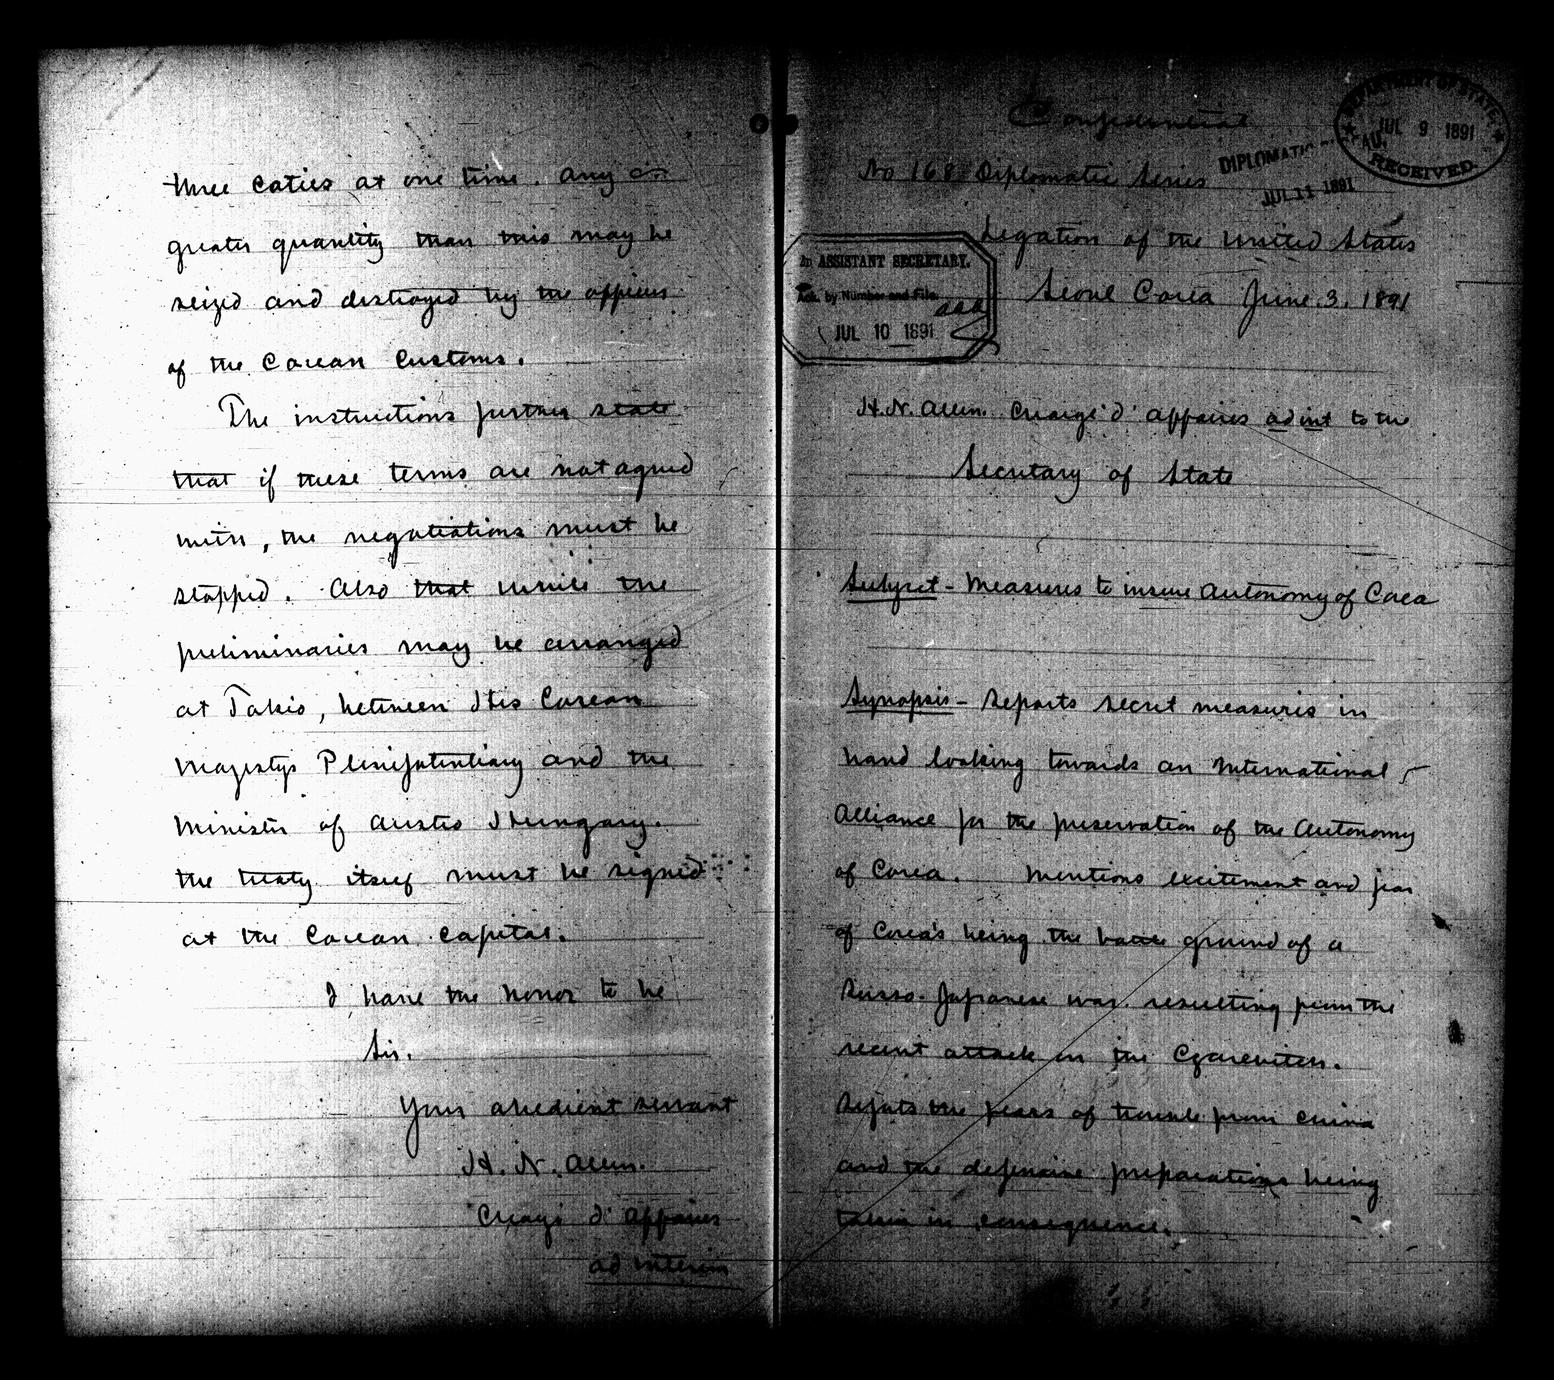 three caties at one time. Any or
greater quantity than this may be
seized and destroyed by the officers
of the Corean Customs.
The instructions further state
that if these terms are not agreed
with, the negotiations must be
stopped. Also that while the
preliminaries may be arranged
at Tokio, between His Corean
Majestys Plenipotentiary and the
Minister of Austro Hungary.
the treaty itself must be signed
at the Corean Capital.
I have the honor to be
Sir.
Your obedient servant
H. N. Allen.
Chargé d' Affaires
ad interim
Confidential
No 168 Diplomatic Series
DEPARTMENT OF STATE
JUL 9 1891
RECEIVED.
DIPLOMATIC
JUL 11 1891
Legation of the United States
2n ASSISTANT SECRETARY.
Ack. by Number and File.
JUL 10 1891
Seoul Corea June. 3. 1891
H. N. Allen. Chargé d' Affaires ad int to the
Secretary of State
Subject - Measures to insure Autonomy of Corea
Synopsis - Reports secret measures in
hand looking towards an International
Alliance for the preservation of the Autonomy
of Corea. Mentions excitement and fear
of Corea's being the battle ground of a
Russo-Japanese war. resulting from the
recent attack on the Czarevitch.
Reports the fears of trouble from China
and the defensive preparations being
taken in consequence.